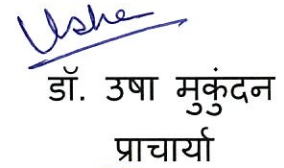 Usha
डॉ. उषा मुकुंदन
प्राचार्या